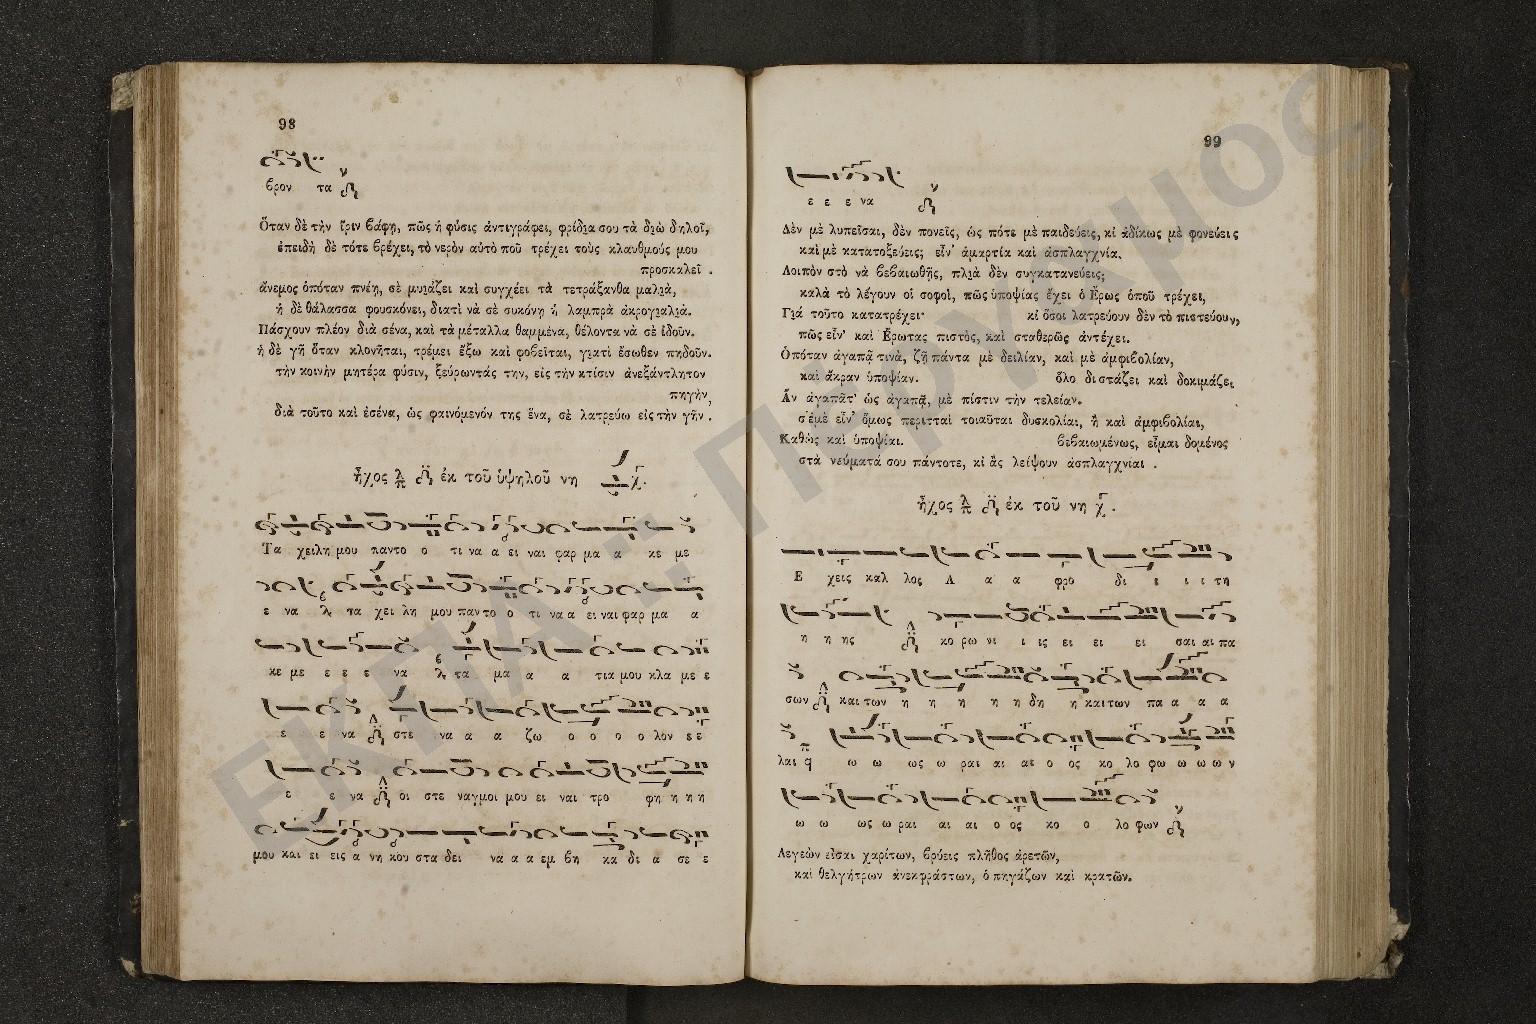 98
βρον τα
Ὅταν δὲ τὴν ἶριν βάφῃ, πῶς ἡ φύσις ἀντιγράφει, φρίδια σου τὰ διὼ δηλοῖ,
ἐπειδὴ δὲ τότε βρέχει, τὸ νερὸν αὐτὸ ποῦ τρέχει τοὺς κλαυθμούς μου
προσκαλεῖ .
ἄνεμος ὁπόταν πνέῃ, σὲ μυιάζει καὶ συγχέει τὰ τετράξανθα μαλιὰ,
ἡ δὲ θάλασσα φουσκόνει, διατὶ νὰ σὲ συκόνῃ ἡ λαμπρὰ ἀκρογιαλιά.
Πάσχουν πλέον διὰ σένα, καὶ τὰ μέταλλα θαμμένα, θέλοντα νὰ σὲ ἰδοῦν.
ἡ δὲ γῆ ὅταν κλονῆται, τρέμει ἔξω καὶ φοβεῖται, γιατὶ ἔσωθεν πηδοῦν.
τὴν κοινὴν μητέρα φύσιν, ξεύρωντάς την, εἰς τὴν κτίσιν ἀνεξάντλητον
πηγὴν,
διὰ τοῦτο καὶ ἐσένα, ὡς φαινόμενόν της ἕνα, σὲ λατρεύω εἰς τὴν γῆν .
ἦχος ἐκ τοῦ ὑψηλοῦ νη
Τα χειλη μου παντο ο τι να α ει ναι φαρ μα α κε με
ε να τα χει λη μου παν το ο τι να α ει ναι φαρ μα α
κε με ε ε ε να τα μα α α τια μου κλα με ε
ε ε να στε να α α ζω ο ο ο ο λον ε ε
ε ε να οι στε ναγμοι μου ει ναι τρο φη η η η
μου και ει εις α νη κου στα δει να α α εμ βη κα δι α σε ε
99
ε ε ε να
Δὲν μὲ λυπεῖσαι, δὲν πονεῖς, ὡς πότε μὲ παιδεύεις, κἰ ἀδίκως μὲ φονεύεις
καὶ μὲ κατατοξεύεις; εἶν' ἁμαρτία καὶ ἀσπλαγχνία.
Λοιπὸν στὸ νὰ βεβαιωθῇς, πλιὰ δὲν συγκατανεύεις;
καλὰ τὸ λέγουν οἱ σοφοὶ, πῶς ὑποψίας ἔχει ὁ Ἔρως ὁποῦ τρέχει,
Γιά τοῦτο κατατρέχει· κἰ ὅσοι λατρεύουν δὲν τὸ πιστεύουν,
πῶς εἶν' καὶ Ἔρωτας πιστὸς, καὶ σταθερῶς ἀντέχει.
Ὁπόταν ἀγαπᾷ τινὰ, ζῇ πάντα μὲ δειλίαν, καὶ μὲ ἀμφιβολίαν,
καὶ ἄκραν ὑποψίαν. ὅλο διστάζει καὶ δοκιμάζει
Ἂν ἀγαπᾶτ' ὡς ἀγαπᾷ, μὲ πίστιν τὴν τελείαν.
σ' ἐμὲ εἶν' ὅμως περιτταὶ τοιαῦται δυσκολίαι, ἢ καὶ ἀμφιβολίαι,
Καθὼς καὶ ὑποψίαι. βεβαιωμένως, εἶμαι δομένος
στὰ νεύματά σου πάντοτε, κἰ ἂς λείψουν ἀσπλαγχνίαι .
ἦχος ἐκ τοῦ νη
Ε χεις καλ λος Α α α φρο δι ι ι ι τη
η η ης κο ρω νι ι ις ει ει ει σαι αι πα
σων και των η η η η η δη η και των πα α α α
λαι ω ω ως ω ραι αι αι ο ος κο λο φω ω ω ω ν
ω ω ως ω ραι αι αι ο ος κο ο λο φων
Λεγεὼν εἶσαι χαρίτων, βρύεις πλῆθος ἀρετῶν,
καὶ θελγήτρων ἀνεκφράστων, ὁ πηγάζων καὶ κρατῶν.
ΕΚΠΑ : ΠΕΡΓΑΜΟΣ